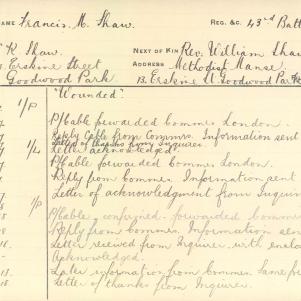 AME Francis M. Shaw. REG. &C. 43rd Batt
K Shaw. NEXT OF KIN Rev. William Shaw
Erskine Street ADDRESS Methodist Manse
Goodwood Park 13. Erskine St Goodwood Park
"Wounded".
1/P P/Cable forwarded Commrs London.
Reply Cable from Commrs. Information sent
Letter of thanks from Inquirer.
1/L Letter acknowledged.
P/Cable forwarded Commrs London.
Reply from Commrs. Information sent
Letter of acknowledgment from Inquirer
1/P P/Cable, confirmed. forwarded Commrs
Reply from Commrs. Information sen
Letter received from Inquirer with enclo
Acknowledged.
Later information from Commrs same for
Letter of thanks from Inquirer.